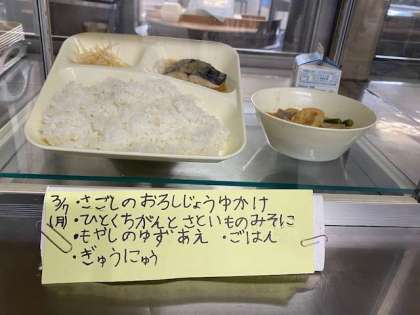 3/7 ・さごしのおろしじょうゆかけ
(月)・ひとくちがんとさといものみそに
・もやしのゆずあえ ・ごはん
・ぎゅうにゅう